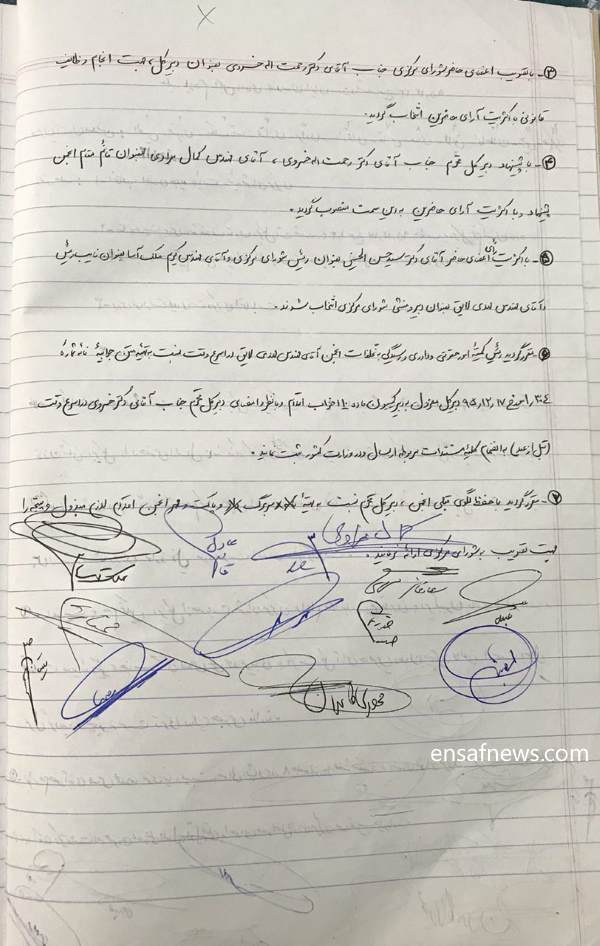 ۳- با تصویب اعضای حاضر شورای مرکزی جناب آقای دکتر رحمت اله خسروی بعنوان دبیرکل، جهت انجام وظایف
قانونی با اکثریت آرای حاضرین انتخاب گردید.
۴- با پیشنهاد دبیرکل محترم جناب آقای دکتر رحمت اله خسروی، آقای مهندس کمال مرادی بعنوان قائم مقام انجمن
پیشنهاد و با اکثریت آرای حاضرین به این سمت منصوب گردید.
۵- با اکثریت رأی اعضای حاضر آقای دکتر سید حسن الحسینی بعنوان رئیس شورای مرکزی و آقای مهندس کریم ملک آسا بعنوان نایب رئیس
و آقای مهندس مهدی لایق بعنوان دبیر و منشی شورای مرکزی انتخاب شدند.
۶- مقرر گردید رئیس کمیته امور حقوقی و داوری و رسیدگی به تخلفات انجمن آقای مهندس مهدی لایق در اسرع وقت نسبت به تهیه متن جوابیه نامه شماره
مورخ ۹۵/۱۲/۱۷ دبیرکل معزول به دبیر کمیسیون ماده ۱۰ احزاب اقدام و با نظر و امضای دبیرکل محترم جناب آقای دکتر خسروی در اسرع وقت
(قبل از عید) به انضمام کلیه مستندات مربوطه ارسال و در وزارت کشور ثبت نماید.
۷- مقرر گردید با حفظ لگوی قبلی انجمن، دبیرکل محترم نسبت به تهیه سربرگ و پاکت و مهر انجمن اقدام لازم مبذول و نتیجه را
جهت تصویب به شورای مرکزی ارائه نمایند.
کمال مرادی
ensafnews.com